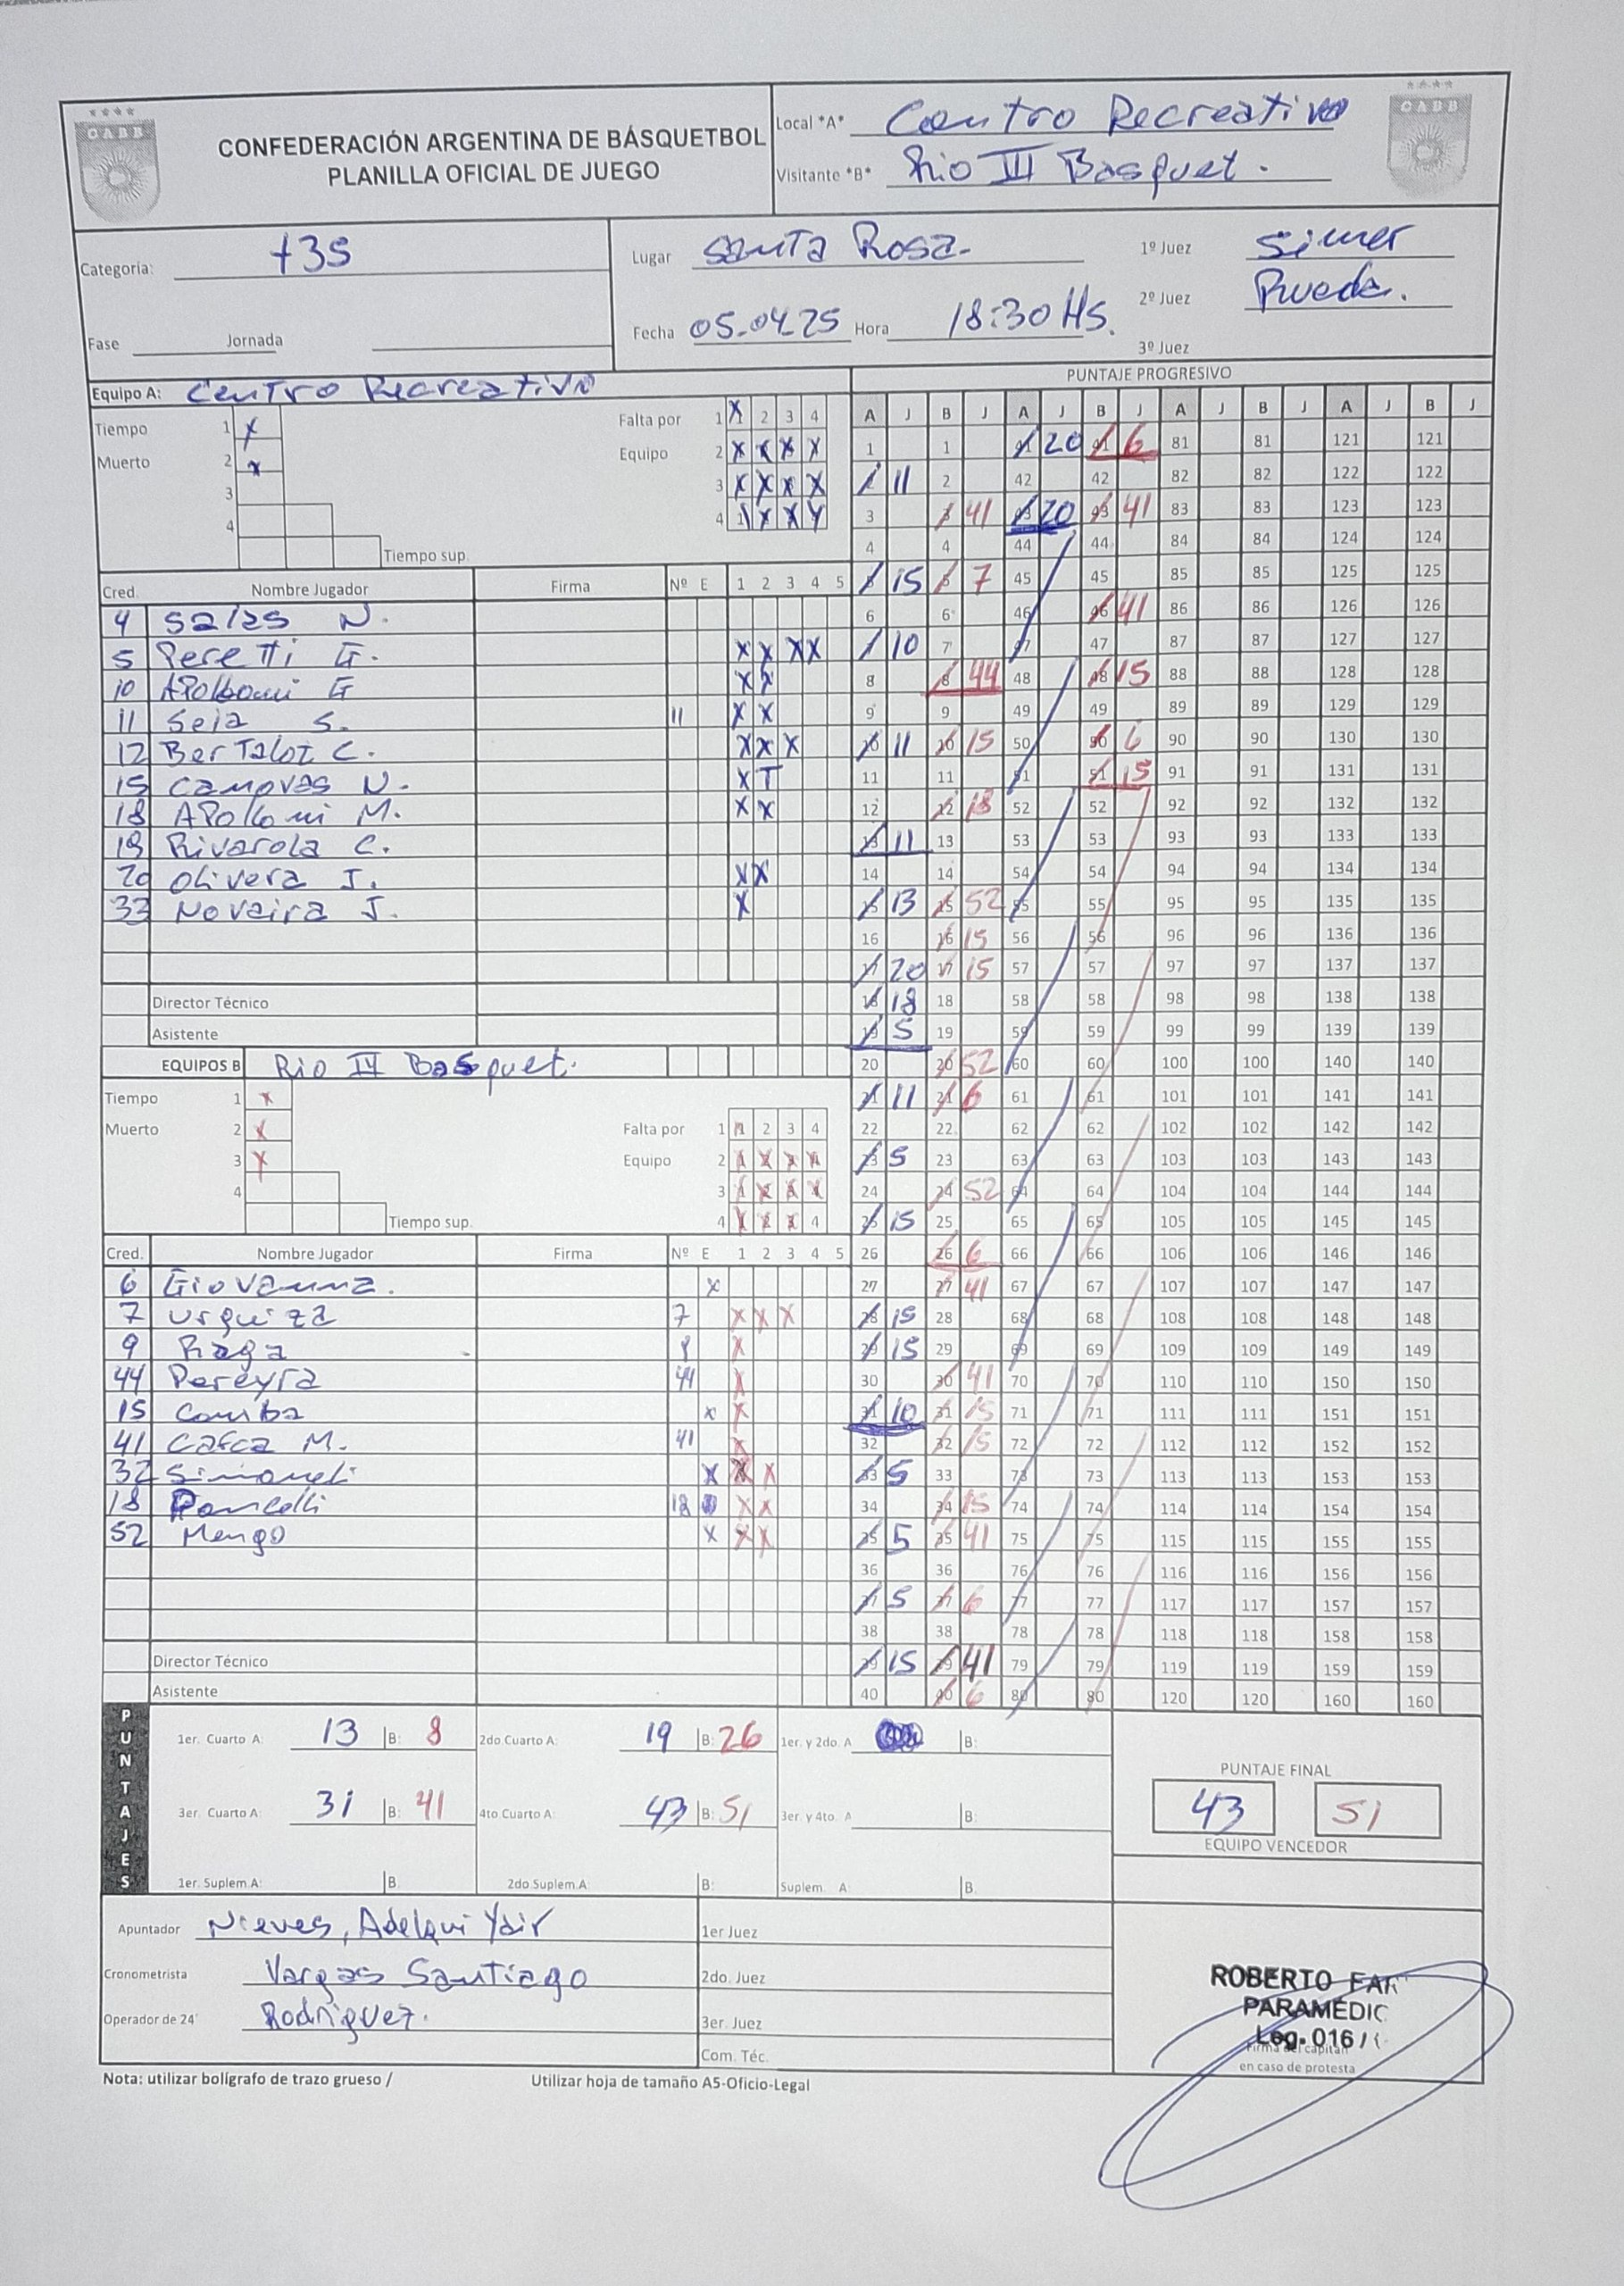 CABB
CONFEDERACIÓN ARGENTINA DE BÁSQUETBOL
PLANILLA OFICIAL DE JUEGO
Local *A* Centro Recreativo
Visitante *B* Rio III Basquet.
CABB
Categoria: +35
Lugar Santa Rosa.
1º Juez Simer
2º Juez Rueda.
Fase Jornada
Fecha 05-04-25 Hora 18:30 Hs.
3º Juez
Equipo A: Centro Recreativo
PUNTAJE PROGRESIVO
Tiempo 1 X
Muerto 2 X
3
4
Tiempo sup.
Falta por 1 X 2 3 4
Equipo 2 X X X X
3 X X X X
4 X X X X
Cred. Nombre Jugador Firma Nº E 1 2 3 4 5
4 Salas N.
5 Peretti G. X X X X
10 Apolloni G X X
11 Seia S. 11 X X
12 Bertaloz C. X X X
15 Canovas N. X T
18 Apolloni M. X X
19 Rivarola C.
20 Olivera J. X X
33 Novaira J. X
Director Técnico
Asistente
EQUIPOS B Rio III Basquet.
Tiempo 1 X
Muerto 2 X
3 X
4
Tiempo sup.
Falta por 1 1 2 3 4
Equipo 2 1 2 3 4
3 1 2 3 4
4 1 2 3 4
Cred. Nombre Jugador Firma Nº E 1 2 3 4 5
6 Giovanna. X
7 Urquiza 7 X X X
9 Raga X
44 Pereyra 44 X
15 Comba X X
41 Carca M. 41 X
32 Simoneli X X X
18 Poncelli 18 X X
52 Mengo X X X
Director Técnico
Asistente
A J B J A J B J A J B J A J B J
1 1 41 20 41 6 81 81 121 121
2 11 2 42 42 82 82 122 122
3 3 41 43 20 43 41 83 83 123 123
4 4 44 44 84 84 124 124
5 15 5 7 45 45 85 85 125 125
6 6 46 46 41 86 86 126 126
7 10 7 47 47 87 87 127 127
8 8 44 48 48 15 88 88 128 128
9 9 49 49 89 89 129 129
10 11 10 15 50 50 6 90 90 130 130
11 11 51 51 15 91 91 131 131
12 12 18 52 52 92 92 132 132
13 11 13 53 53 93 93 133 133
14 14 54 54 94 94 134 134
15 13 15 52 55 55 95 95 135 135
16 16 15 56 56 96 96 136 136
17 20 17 15 57 57 97 97 137 137
18 18 18 58 58 98 98 138 138
19 5 19 59 59 99 99 139 139
20 20 52 60 60 100 100 140 140
21 11 21 6 61 61 101 101 141 141
22 22 62 62 102 102 142 142
23 5 23 63 63 103 103 143 143
24 24 52 64 64 104 104 144 144
25 15 25 65 65 105 105 145 145
26 26 6 66 66 106 106 146 146
27 27 41 67 67 107 107 147 147
28 15 28 68 68 108 108 148 148
29 15 29 69 69 109 109 149 149
30 30 41 70 70 110 110 150 150
31 10 31 15 71 71 111 111 151 151
32 32 15 72 72 112 112 152 152
33 5 33 73 73 113 113 153 153
34 34 15 74 74 114 114 154 154
35 5 35 41 75 75 115 115 155 155
36 36 76 76 116 116 156 156
37 5 37 6 77 77 117 117 157 157
38 38 78 78 118 118 158 158
39 15 39 41 79 79 119 119 159 159
40 40 6 80 80 120 120 160 160
PUNTAJES
1er. Cuarto A: 13 B: 8 2do.Cuarto A: 19 B: 26 1er. y 2do. A B:
3er. Cuarto A: 31 B: 41 4to.Cuarto A: 43 B: 51 3er. y 4to. A B:
1er.Suplem.A: B. 2do.Suplem.A: B: Suplem. A: B.
PUNTAJE FINAL
43 51
EQUIPO VENCEDOR
Apuntador Nieves, Adelqui Yair
Cronometrista Vargas Santiago
Operador de 24' Rodriguez.
1er Juez
2do. Juez
3er. Juez
Com. Téc.
ROBERTO FAR
PARAMÉDIC
Leg. 016/
Firma del capitán
en caso de protesta
Nota: utilizar bolígrafo de trazo grueso / Utilizar hoja de tamaño A5-Oficio-Legal